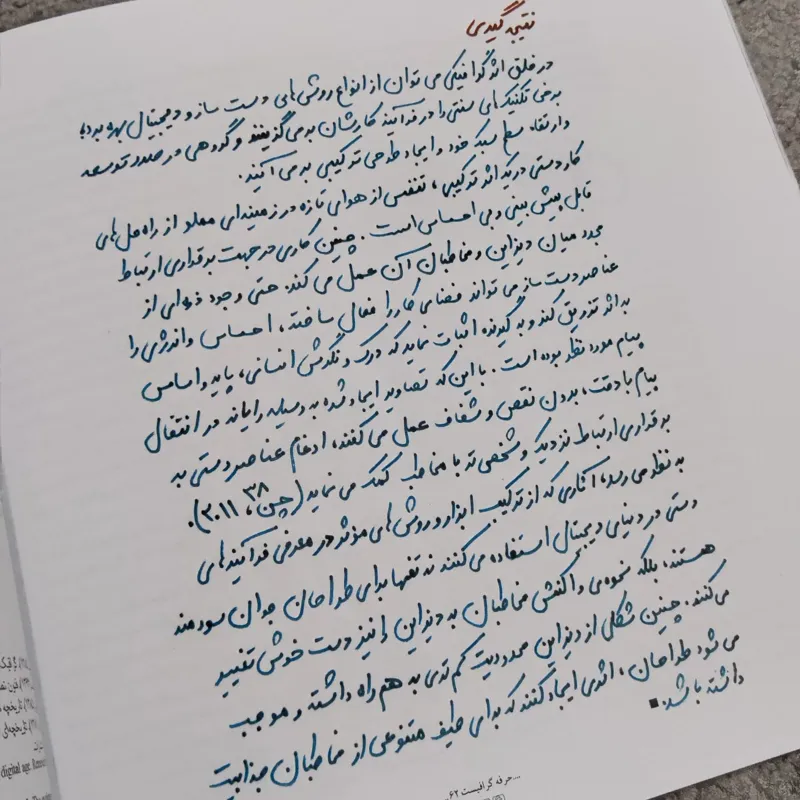 نتیجه گیری
در خلق اثر گرافیکی می توان از انواع روش های دست ساز و دیجیتال بهره برد؛
برخی تکنیک های سنتی را در فرآیند کارشان بر می گزینند و گروهی در صدد توسعه
و ارتقاء سطح سبک خود و ایجاد طرحی ترکیبی بر می آیند.
کار دستی در یک اثر ترکیبی، تنفس از هوای تازه در زمینه ای مملو از راه حل های
قابل پیش بینی و بی احساس است. چنین کاری در جهت برقراری ارتباط
مجدد میان دیزاین و مخاطبان آن عمل می کند. حتی وجود ذره ای از
عناصر دست ساز می تواند فضای کار را فعال ساخته، احساس و انرژی را
به اثر تزریق کند و به گیرنده اثبات نماید که درک و نگرش انسانی، پایه و اساس
پیام مورد نظر بوده است. با این که تصاویر ایجاد شده به وسیله رایانه در انتقال
پیام با دقت، بدون نقص و شفاف عمل می کنند، ادغام عناصر دستی به
برقراری ارتباط نزدیک و شخصی تر با مخاطب کمک می نماید (چن، ۳۸، ۲۰۱۱).
به نظر می رسد، آثاری که از ترکیب ابزار و روش های مؤثر در معرفی فرآیندهای
دستی در دنیای دیجیتال استفاده می کنند نه تنها برای طراحان جوان سودمند
هستند، بلکه نحوه ی واکنش مخاطبان به دیزاین را نیز دست خوش تغییر
می کنند. چنین شکلی از دیزاین محدودیت کم تری به هم راه داشته و موجب
می شود طراحان، اثری ایجاد کنند که برای طیف متنوعی از مخاطبان جذابیت
داشته باشد.■
...حرفه گرافیست ۶۲
digital age.